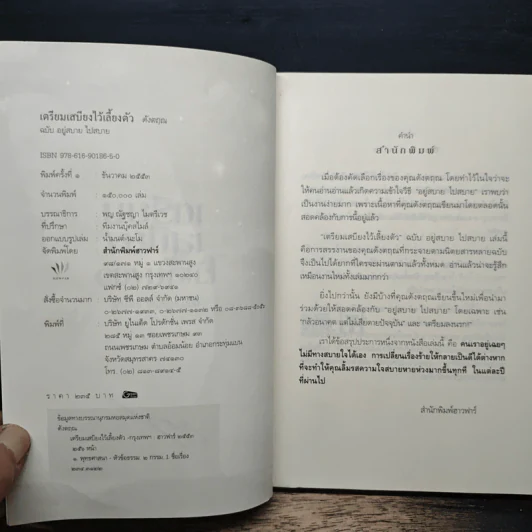 เตรียมเสบียงไว้เลี้ยงตัว ดังตฤณ
ฉบับ อยู่สบาย ไปสบาย
ISBN 978-616-90186-5-0
พิมพ์ครั้งที่ ๑ ธันวาคม ๒๕๕๓
จำนวนพิมพ์ ๑๕๐,๐๐๐ เล่ม
บรรณาธิการ พญ.ณัฐชญา ไมตรีเวช
ที่ปรึกษา ทีมงานบุ๊คสไมล์
ออกแบบรูปเล่ม น้ำมนต์-นะโม่
จัดพิมพ์โดย สำนักพิมพ์ฮาวฟาร์
หมู่ ๑ แขวงสะพานสูง
เขตสะพานสูง กรุงเทพฯ ๑๐๒๔๐
สั่งซื้อจำนวนมาก บริษัท ซีพี ออลล์ จำกัด (มหาชน)
พิมพ์ที่ บริษัท ยูไนเต็ด โปรดักชั่น เพรส จำกัด
๒๔๕ หมู่ ๑๓ ซอยเพชรเกษม
ถนนเพชรเกษม ตำบลอ้อมน้อย อำเภอกระทุ่มแบน
จังหวัดสมุทรสาคร ๗๔๑๓๐
ราคา ๒๓๕ บาท
ข้อมูลทางบรรณานุกรมหอสมุดแห่งชาติ
ดังตฤณ
เตรียมเสบียงไว้เลี้ยงตัว.-กรุงเทพฯ : ฮาวฟาร์ ๒๕๕๓
หน้า
๑. พุทธศาสนา - หัวข้อธรรม. ๒ กรรม. I ชื่อเรื่อง
คำนำ
สำนักพิมพ์
เมื่อต้องคัดเลือกเรื่องของคุณดังตฤณ โดยทำไว้ในใจว่าจะ
ให้คนอ่านอ่านแล้วเกิดความเข้าใจวิธี “อยู่สบาย ไปสบาย” เราพบว่า
เป็นงานง่ายมาก เพราะเนื้อหาที่คุณดังตฤณเขียนมาโดยตลอดนั้น
สอดคล้องกับการนี้อยู่แล้ว
“เตรียมเสบียงไว้เลี้ยงตัว” ฉบับ อยู่สบาย ไปสบาย เล่มนี้
คือการสรรงานของคุณดังตฤณที่กระจายตามนิตยสารหลายฉบับ
จึงเป็นไปได้ยากที่ใครจะผ่านตามาแล้วทั้งหมด อ่านแล้วน่าจะรู้สึก
เหมือนงานใหม่ทั้งเล่มมากกว่า
ยิ่งไปกว่านั้น ยังมีบ้างที่คุณดังตฤณเขียนขึ้นใหม่เพื่อนำมา
ร่วมด้วยให้สอดคล้องกับ “อยู่สบาย ไปสบาย” โดยเฉพาะ เช่น
“กลัวอนาคต แต่ไม่เสียดายปัจจุบัน” และ “เตรียมลงนรก”
เราได้ข้อสรุปประการหนึ่งจากหนังสือเล่มนี้ คือ คนเราอยู่เฉยๆ
ไม่มีทางสบายใจได้เอง การเปลี่ยนเรื่องร้ายให้กลายเป็นดีได้ต่างหาก
ที่จะทำให้คุณลิ้มรสความใจสบายหายห่วงมากขึ้นทุกที ในแต่ละปี
ที่ผ่านไป
สำนักพิมพ์ฮาวฟาร์